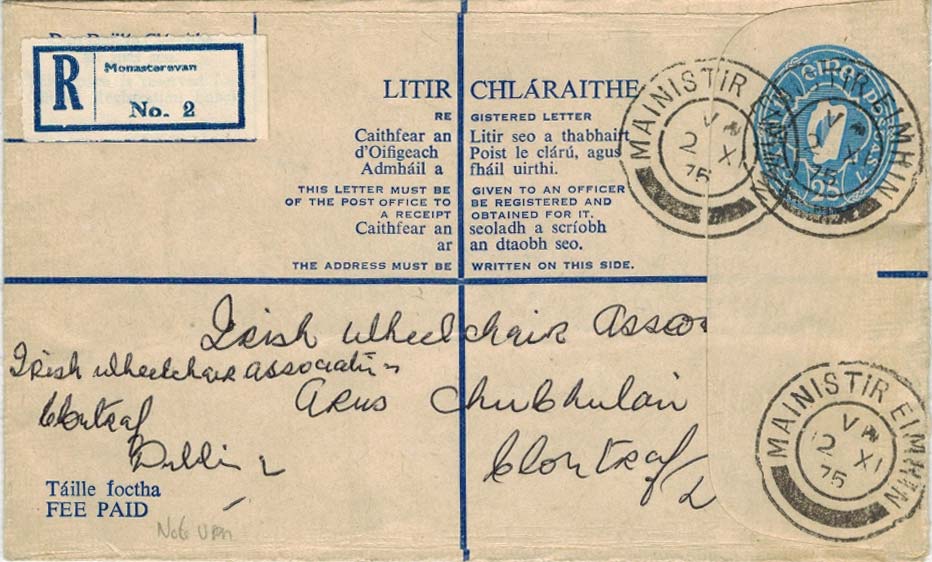 R Monasterevan
No. 2
LITIR CHLÁRAITHE
REGISTERED LETTER
Caithfear an Litir seo a thabhairt
d'Oifigeach Poist le clárú, agus
Admháil a fháil uirthi.
THIS LETTER MUST BE GIVEN TO AN OFFICER
OF THE POST OFFICE TO BE REGISTERED AND
A RECEIPT OBTAINED FOR IT.
Caithfear an seoladh a scríobh
ar an dtaobh seo.
THE ADDRESS MUST BE WRITTEN ON THIS SIDE.
MAINISTIR EIMHIN
2 XI
75
MAINISTIR EIMHIN
XI
75
Irish Wheelchair Assoc
Arus Chuchulain
Clontraf
Irish Wheelchair Association
Clontraf
Dublin
Táille íoctha
FEE PAID
Note VPM
MAINISTIR EIMHIN
2 XI
75